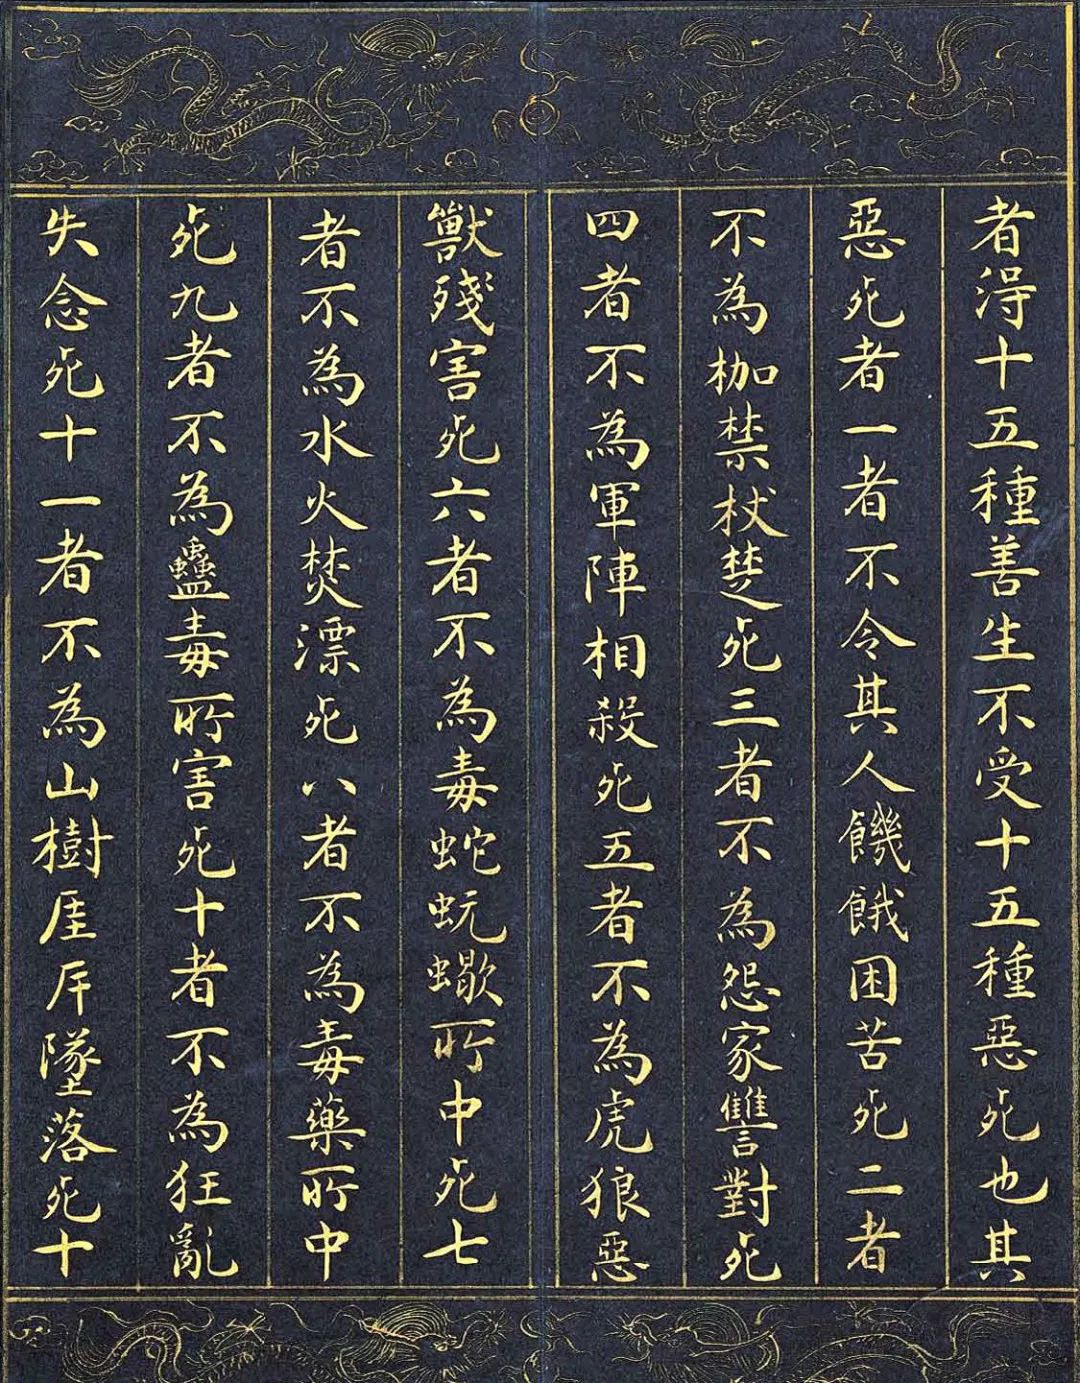 者淂十五種善生不受十五種惡死也其
惡死者一者不令其人饑餓困苦死二者
不為枷禁杖楚死三者不為怨家讐對死
四者不為軍陣相殺死五者不為虎狼惡
獸殘害死六者不為毒蛇蚖蠍所中死七
者不為水火焚漂死八者不為毒藥所中
死九者不為蠱毒所害死十者不為狂亂
失念死十一者不為山樹崖岸墜落死十